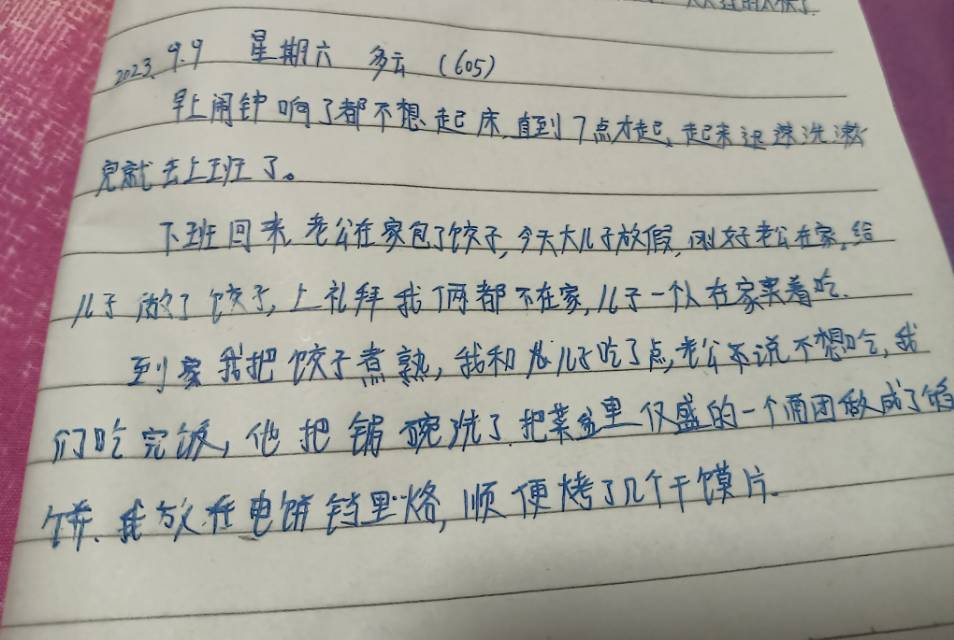 2023.9.9 星期六 多云 (605)
早上闹钟响了都不想起床,直到7点才起,起来迅速洗漱
完就去上班了。
下班回来老公在家包了饺子,今天大儿子放假,刚好老公在家,给
儿子做了饺子,上礼拜我俩都不在家,儿子一个人在家煮着吃.
到家我把饺子煮熟,我和儿子吃了点,老公不说不想吃,我
们吃完饭,他把锅碗洗了.把菜盆里仅盛的一个面团做成了馅
饼、我放在电饼铛里烙,顺便烤了几个干馍片.